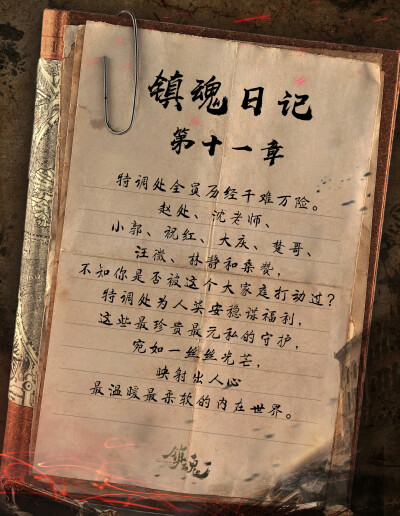 镇魂日记
第十一章
特调处全员历经千难万险。
赵处、沈老师、
小郭、祝红、大庆、楚哥、
汪徵、林静和桑赞,
不知你是否被这个大家庭打动过?
特调处为人类安稳谋福利,
这些最珍贵最无私的守护,
宛如一丝丝光芒,
映射出人心
最温暖最柔软的内在世界。
镇魂